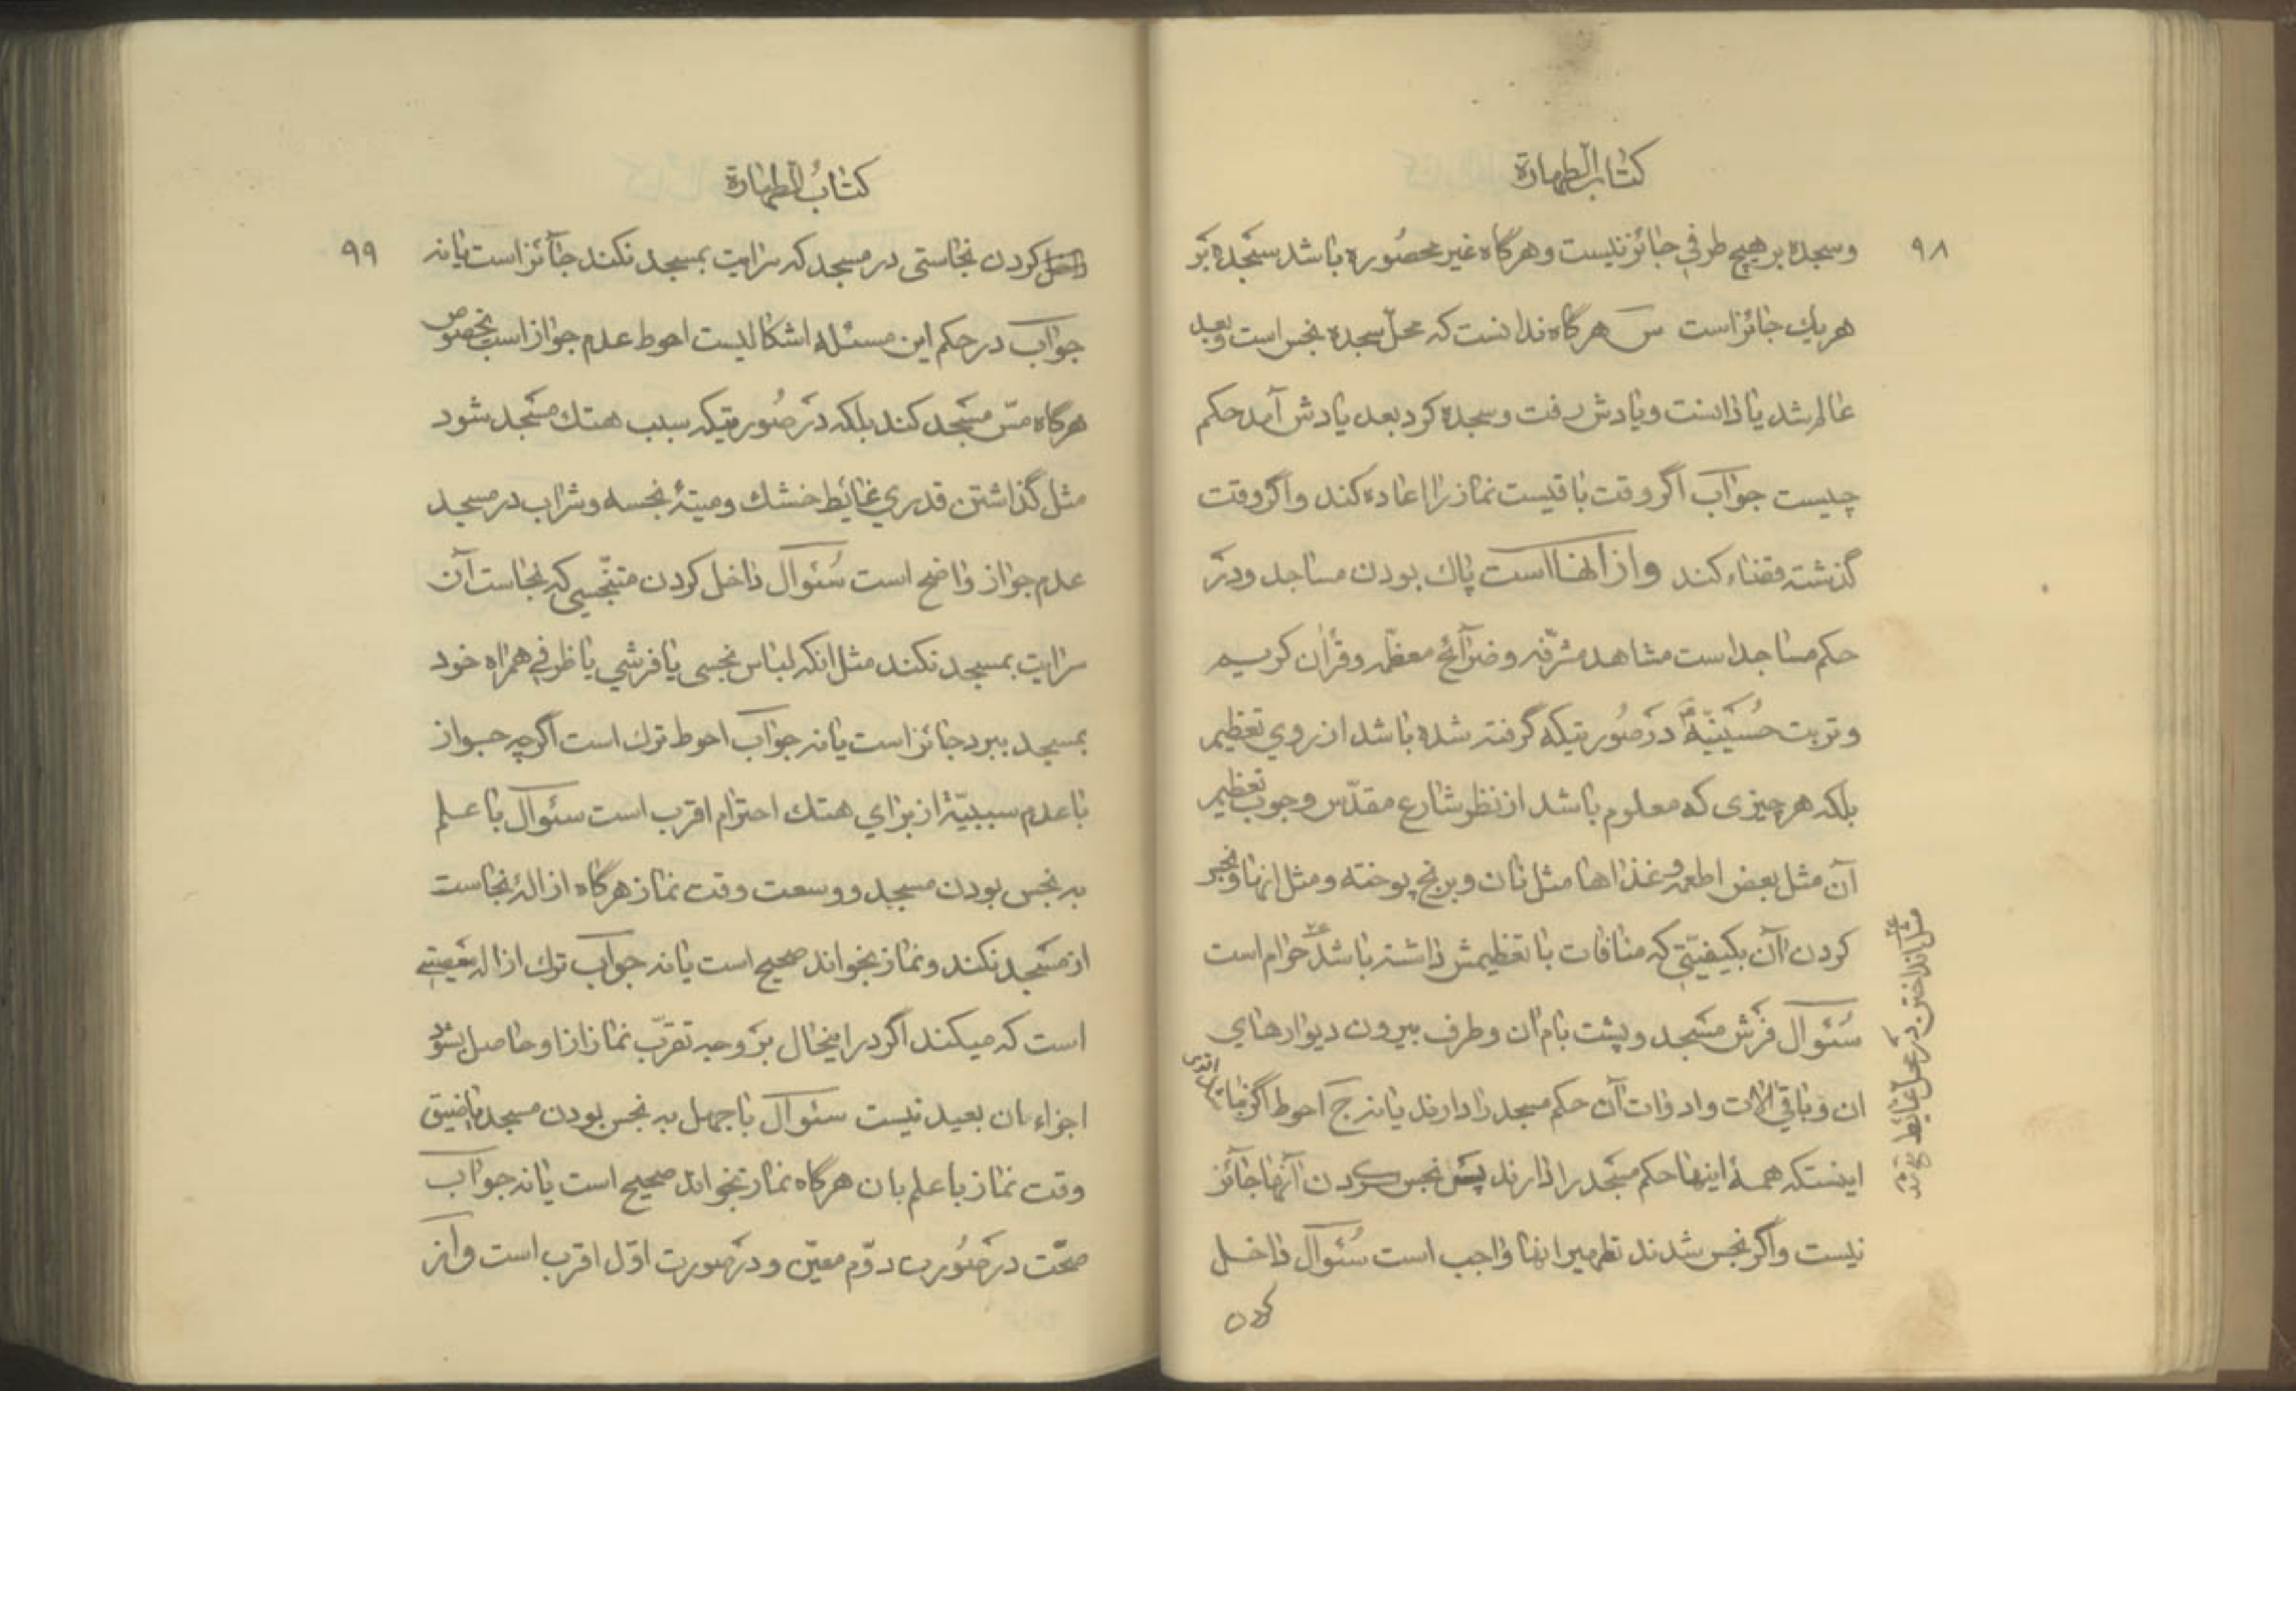 كتاب الطهارة
۹۸
و سجده بر هیچ طرفی جائز نیست و هرگاه غیر محصوره باشد سجده بر
هریك جائز است س هرگاه ندانست که محل سجده نجس است و بعد
عالم شد یا دانست و یادش رفت و سجده کرد بعد یادش آمد حکم
چیست جواب اگر وقت باقیست نماز را اعاده کند و اگر وقت
گذشته قضاء کند و از انها است پاك بودن مساجد و در
حکم مساجد است مشاهد مشرّفه و ضرائح معظّمه و قرآن کریم
و تربت حُسَینیّة در صُورتیکه گرفته شده باشد از روی تعظیم
بلکه هر چیزی که معلوم باشد از نظر شارع مقدّس وجوب تعظیم
آن مثل بعض اطعمه و غذاها مثل نان و برنج پوخته و مثل انها و نجس
کردن آن بکیفیّتی که منافات با تعظیمش داشته باشد حرام است
مثل انداختن در محل غائط
سُئوال فرش مسجد و پشت بام ان و طرف بیرون دیوارهای
ان و باقی الات و ادوات آن حکم مسجد را دارند یا نه ج احوط اگر نباشد اقوی
اینستکه همهٔ اینها حکم مسجد را دارند پس نجس کردن آنها جائز
نیست و اگر نجس شدند تطهیر انها واجب است سُئوال داخل
کردن
كتابُ الطهارة
۹۹
داخل کردن نجاستی در مسجد که سرایت بمسجد نکند جائز است یا نه
جواب در حکم این مسئله اشکالیست احوط عدم جواز است بخصوص
هرگاه مسّ مسجد کند بلکه در صُورتیکه سبب هتك مسجد شود
مثل گذاشتن قدری غایط خشك و میتهٔ نجسه و شراب در مسجد
عدم جواز واضح است سُئوال داخل کردن متنجّسی که نجاست آن
سرایت بمسجد نکند مثل انکه لباس نجسی یا فرشی یا ظرفی همراه خود
بمسجد ببرد جائز است یا نه جواب احوط ترك است اگرچه جواز
با عدم سببیّة از برای هتك احترام اقرب است سئوال با علم
به نجس بودن مسجد و وسعت وقت نماز هرگاه ازالهٔ نجاست
از مسجد نکند و نماز بخواند صحیح است یا نه جواب ترك ازاله معصیتی
است که میکند اگر در اینحال بر وجه تقرّب نماز از او حاصل شود
اجزاء ان بعید نیست سئوال با جهل به نجس بودن مسجد یا ضیق
وقت نماز با علم بان هرگاه نماز بخواند صحیح است یا نه جواب
صحّت در صُورت دوّم معیّن و در صورت اوّل اقرب است و از